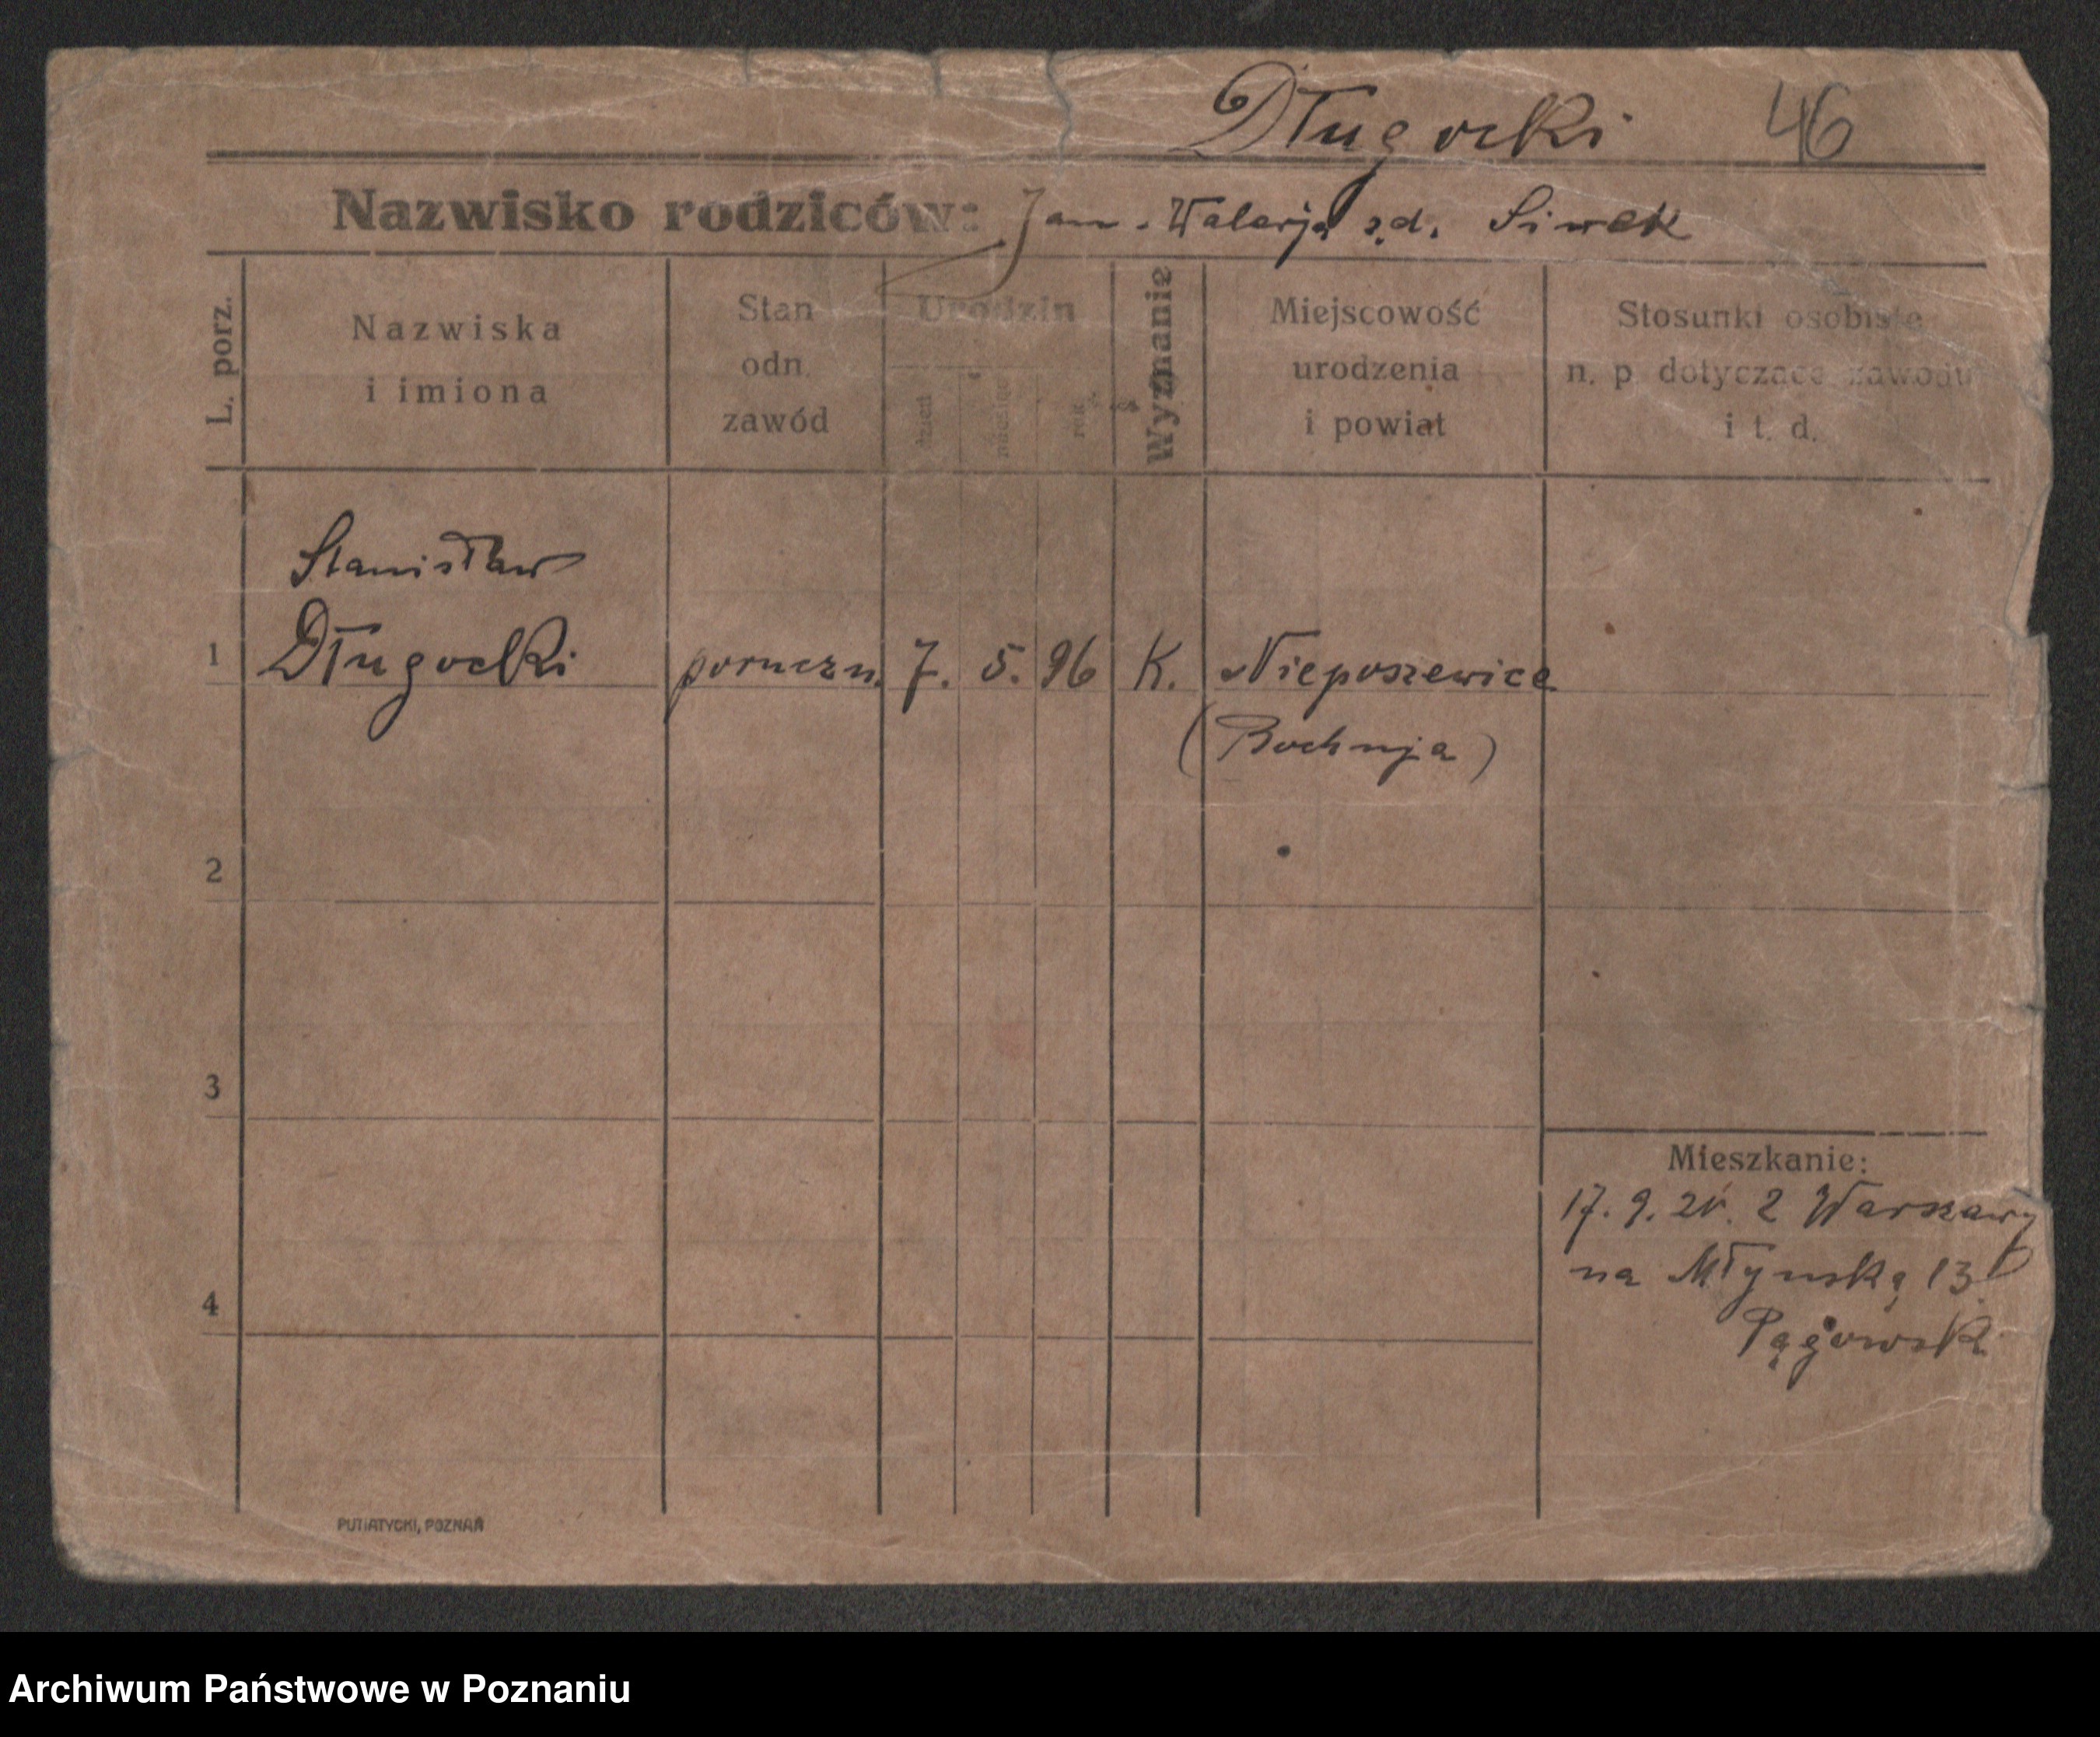 Długocki 46
Nazwisko rodziców: Jan. Walerja z.d. Siwek
L. porz.
Nazwiska
i imiona
Stan
odn.
zawód
Urodzin
dzień
miesiąc
rok
Wyznanie
Miejscowość
urodzenia
i powiat
Stosunki osobiste
n. p. dotyczące zawodu
i t. d.
Stanisław
1 Długocki poruczn. 7. 5. 96 K. Nieposzewice
(Bochnja)
2
3
4
Mieszkanie:
17. 9. 20. z Warszawy
na Młyńską 13.
PUTIATYCKI, POZNAŃ
Archiwum Państwowe w Poznaniu